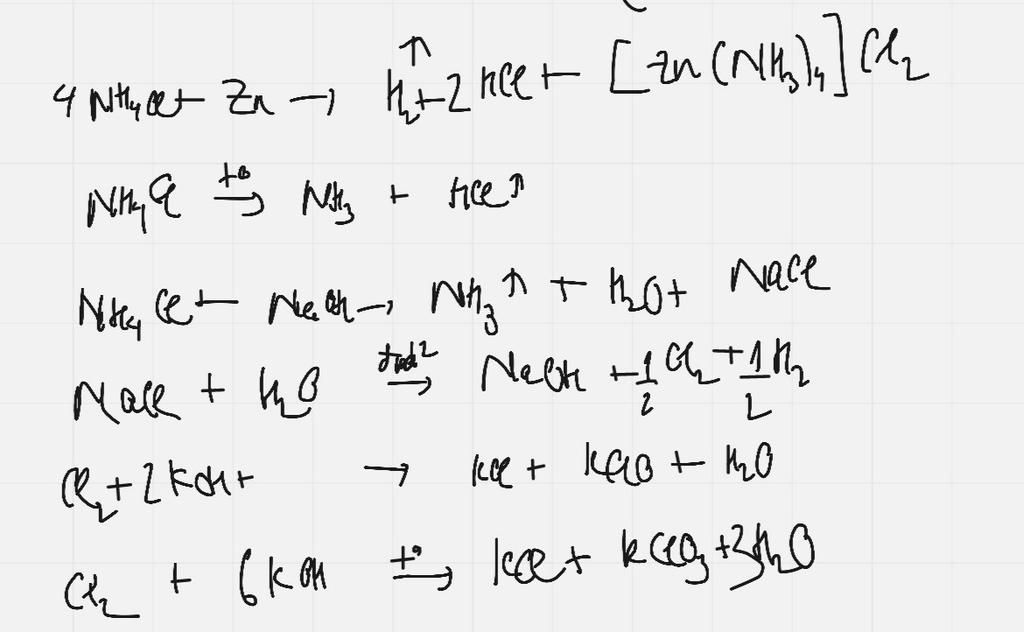 4 NH₄Cl + Zn → H₂↑ + 2 HCl + [Zn(NH₃)₄]Cl₂
NH₄Cl →(t°) NH₃ + HCl↑
NH₄Cl + NaOH → NH₃↑ + H₂O + NaCl
NaCl + H₂O → NaOH + 1/2 Cl₂ + 1/2 H₂
Cl₂ + 2KOH + → KCl + KClO + H₂O
Cl₂ + 6KOH →(t°) KCl + KClO₃ + 3H₂O